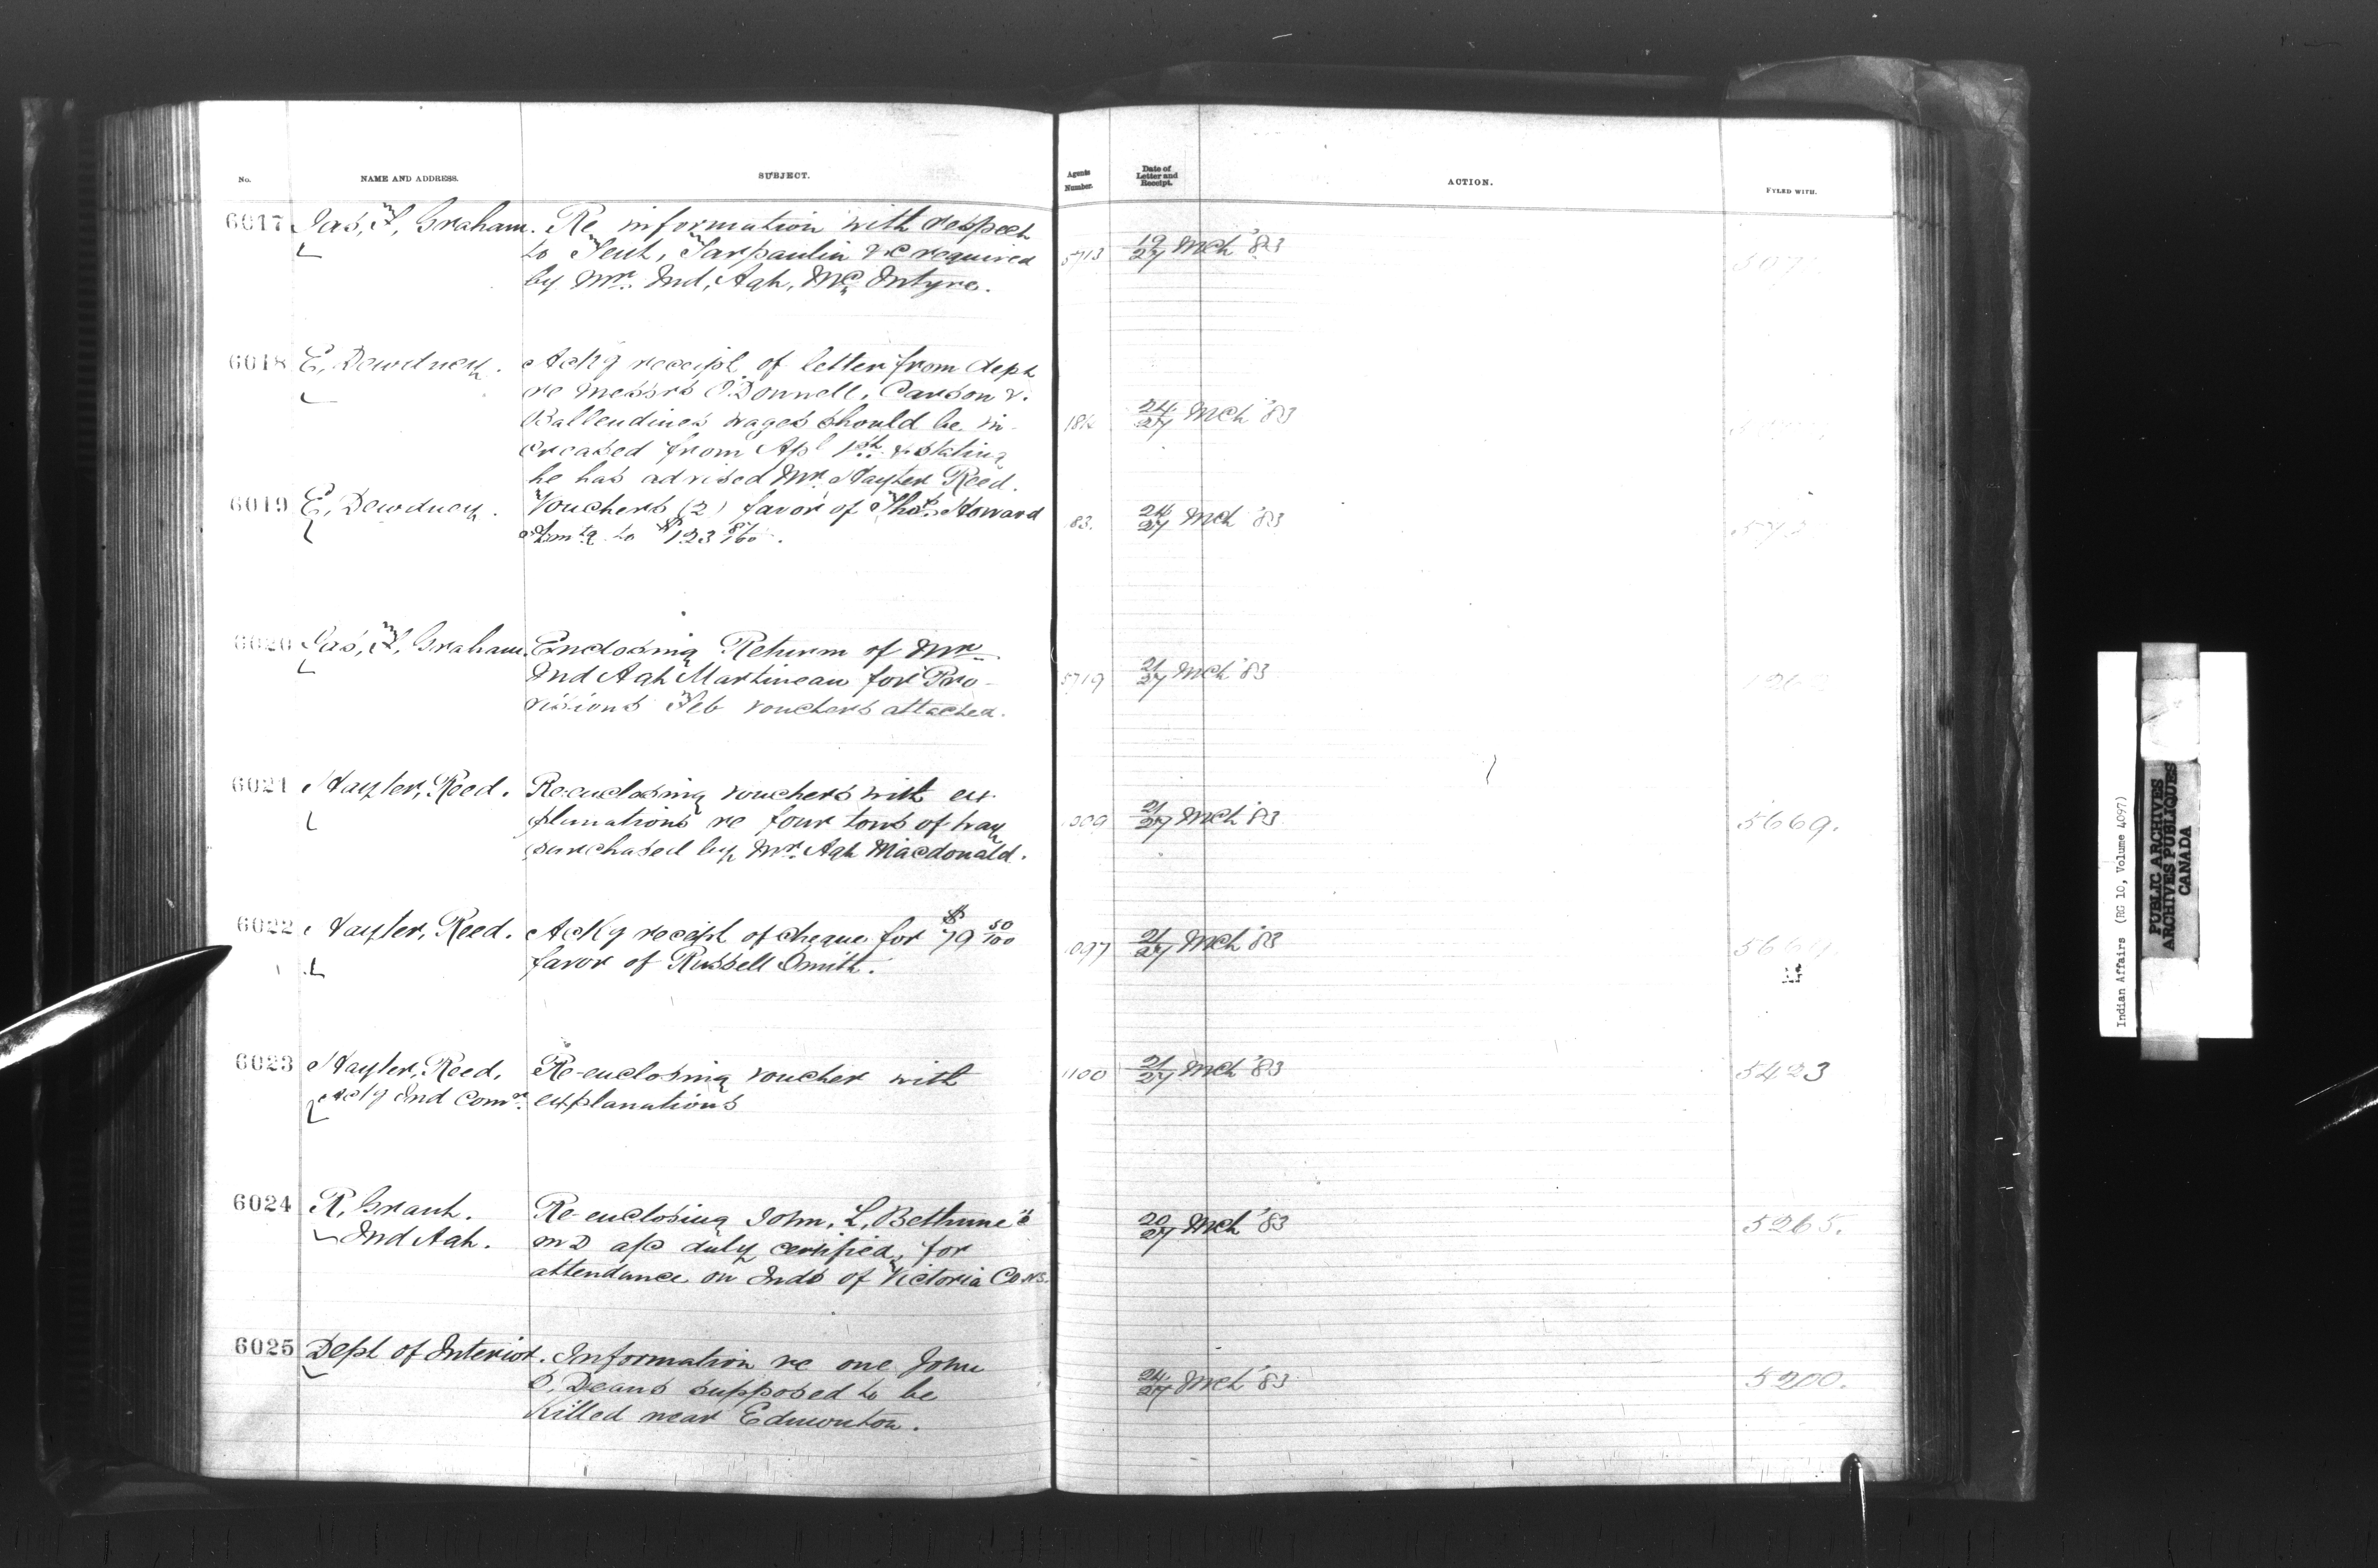 No. NAME AND ADDRESS. SUBJECT. Agents Number. Date of Letter and Receipt. ACTION. FYLED WITH.
6017 Jas, F, Graham. Re information with respect
to Tent, Tarpaulin &c required 5713 19/27 Mch '83
by Mr. Ind, Agt, McIntyre.
6018 E, Dewdney. Ackg receipt of letter from dept
re Messrs O'Donnell, Carson &
Ballendines wages should be in- 24/27 Mch '83
creased from Apl 1st & stating
he has advised Mr. Hayter Reed.
6019 E, Dewdney. Vouchers (2) favor of Thos. Howard 83. 24/27 Mch '83
Amtg to $123 87/100.
6020 Jas, F, Graham. Enclosing Return of Mr.
Ind Agt Martineau for Pro- 5719 21/27 Mch '83
visions Feb vouchers attached.
6021 Hayter, Reed. Re-enclosing vouchers with ex-
planations re four tons of hay 21/27 Mch '83 5669.
purchased by Mr. Agt Macdonald.
6022 Hayter, Reed. Ackg receipt of cheque for $79 50/100 1097 21/27 Mch '83
favor of Russell Smith.
6023 Hayter, Reed, Re-enclosing voucher with 1100 21/27 Mch '83 5423
Actg Ind Comr. explanations
6024 R, Grant. Re-enclosing John, L, Bethune's 20/27 Mch '83 5265.
Ind Agt. MD a/c duly certified, for
attendance on Inds of Victoria Co NS.
6025 Dept of Interior. Information re one John
O, Deans supposed to be 24/27 Mch '83 5200.
Killed near Edmonton.
Indian Affairs (RG 10, Volume 4097)
PUBLIC ARCHIVES
ARCHIVES PUBLIQUES
CANADA